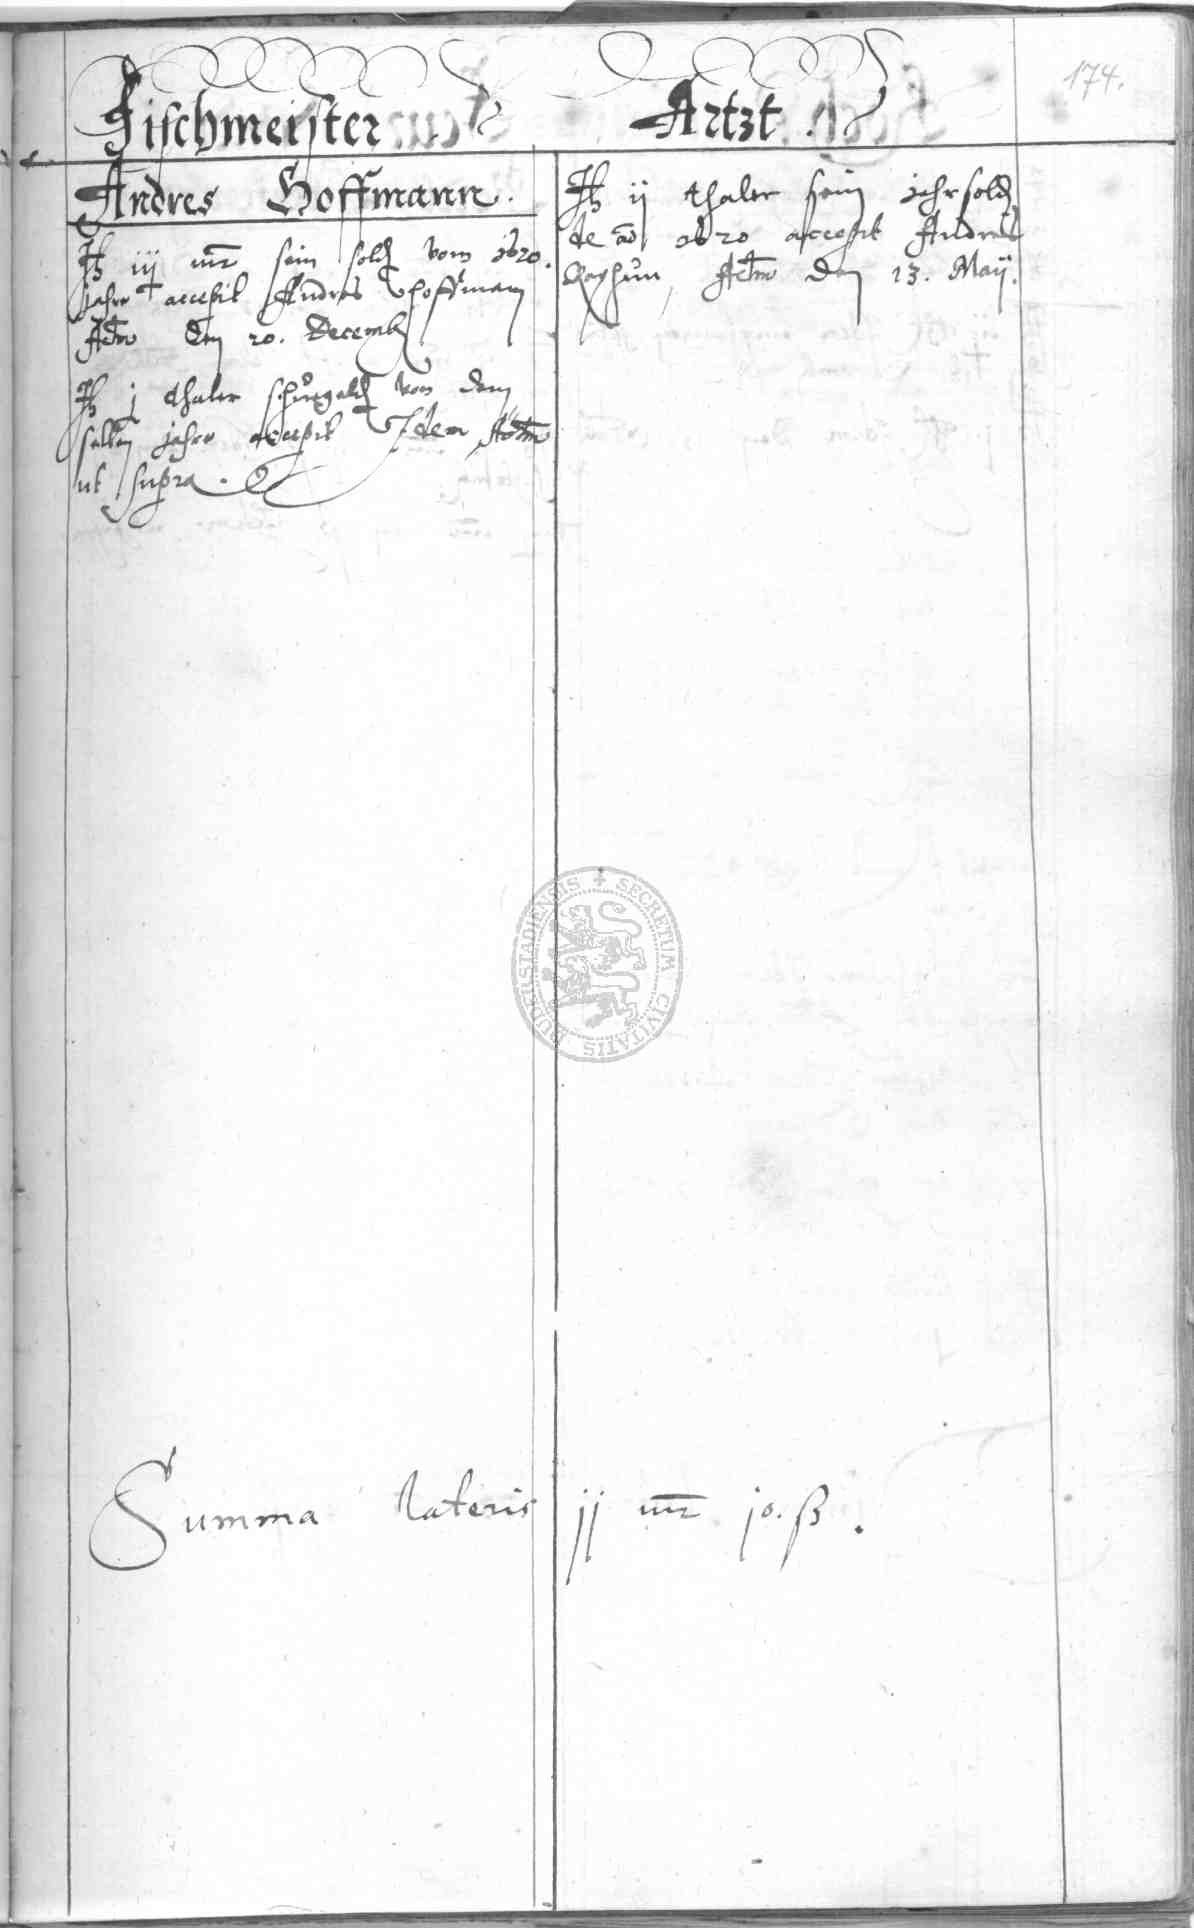 174.
Fischmeister
Andres Hoffmann.
It iij mr sein sold vom 1620.
jahre accepit Andres Hoffman
Actm den 20. Decemb
It j thaler schugeld von dem
selben jahre accepit Idem Actm
ut supra.
Artzt.
It ij thaler sein jahrsold
de ao 1620 accepit Andres
Actm den 13. Maij.
Summa lateris jj mr jo. ß.
SECRETUM CIVITATIS DUDERSTADIENSIS